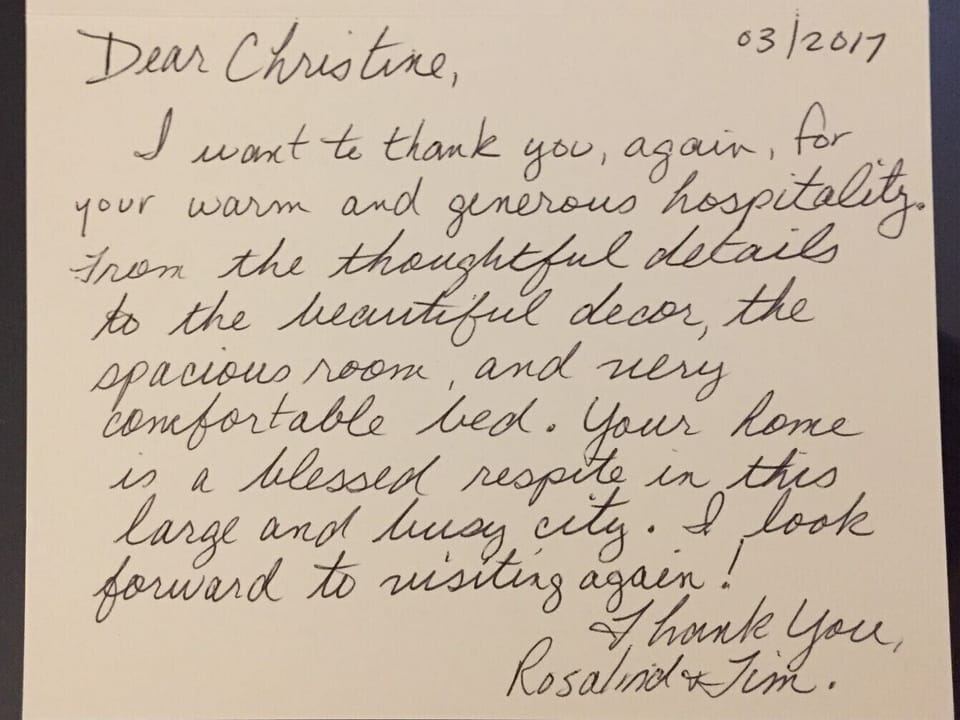 03/2017
Dear Christine,
I want to thank you, again, for
your warm and generous hospitality.
From the thoughtful details
to the beautiful decor, the
spacious room, and very
comfortable bed. Your home
is a blessed respite in this
large and busy city. I look
forward to visiting again!
Thank You,
Rosalind & Tim.